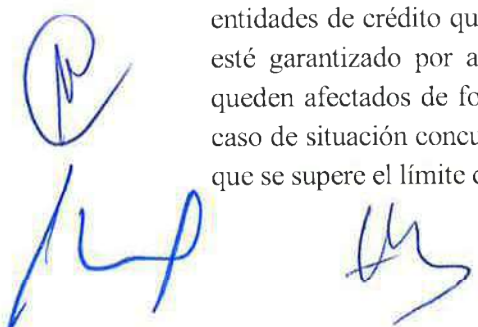 entidades de crédito qu
esté garantizado por a
queden afectados de fo
caso de situación concu
que se supere el límite